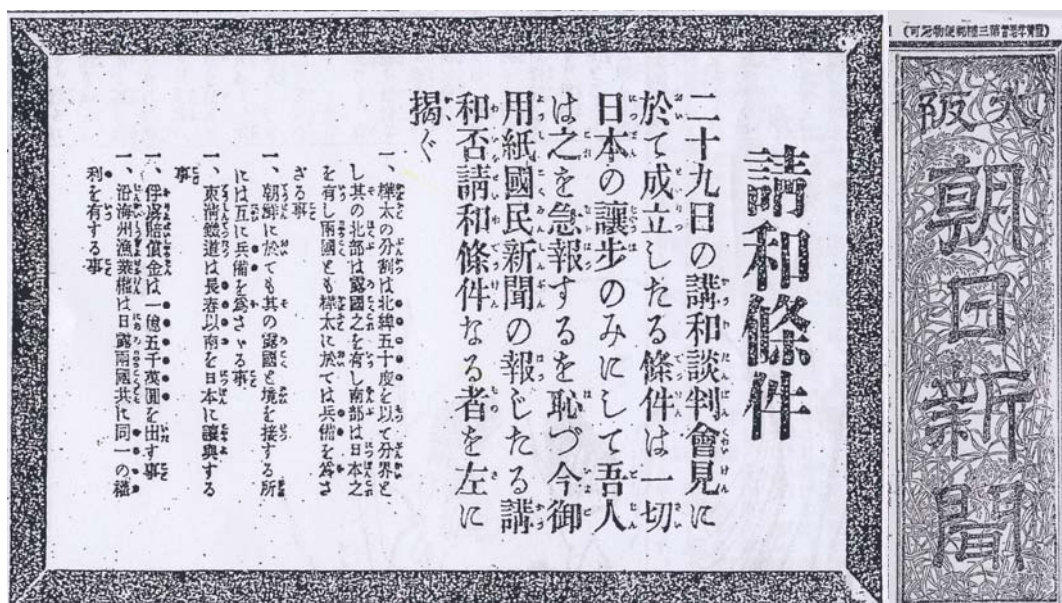 大阪
朝日新聞
請和條件
二十九日の講和談判會見に
於て成立したる條件は一切
日本の讓步のみにして吾人
は之を急報するを恥づ今御
用紙國民新聞の報じたる講
和否請和條件なる者を左に
揭ぐ
一、樺太の分割は北緯五十度を以て分界と
し其の北部は露國之を有し南部は日本之
を有し兩國とも樺太に於ては兵備を爲さ
ざる事
一、朝鮮に於ても其の露國と境を接する所
には互に兵備を爲さゞる事
一、東淸鐵道は長春以南を日本に讓與する
事
一、俘虜賠償金は一億五千萬圓を出す事
一、沿海州漁業權は日露兩國共に同一の權
利を有する事